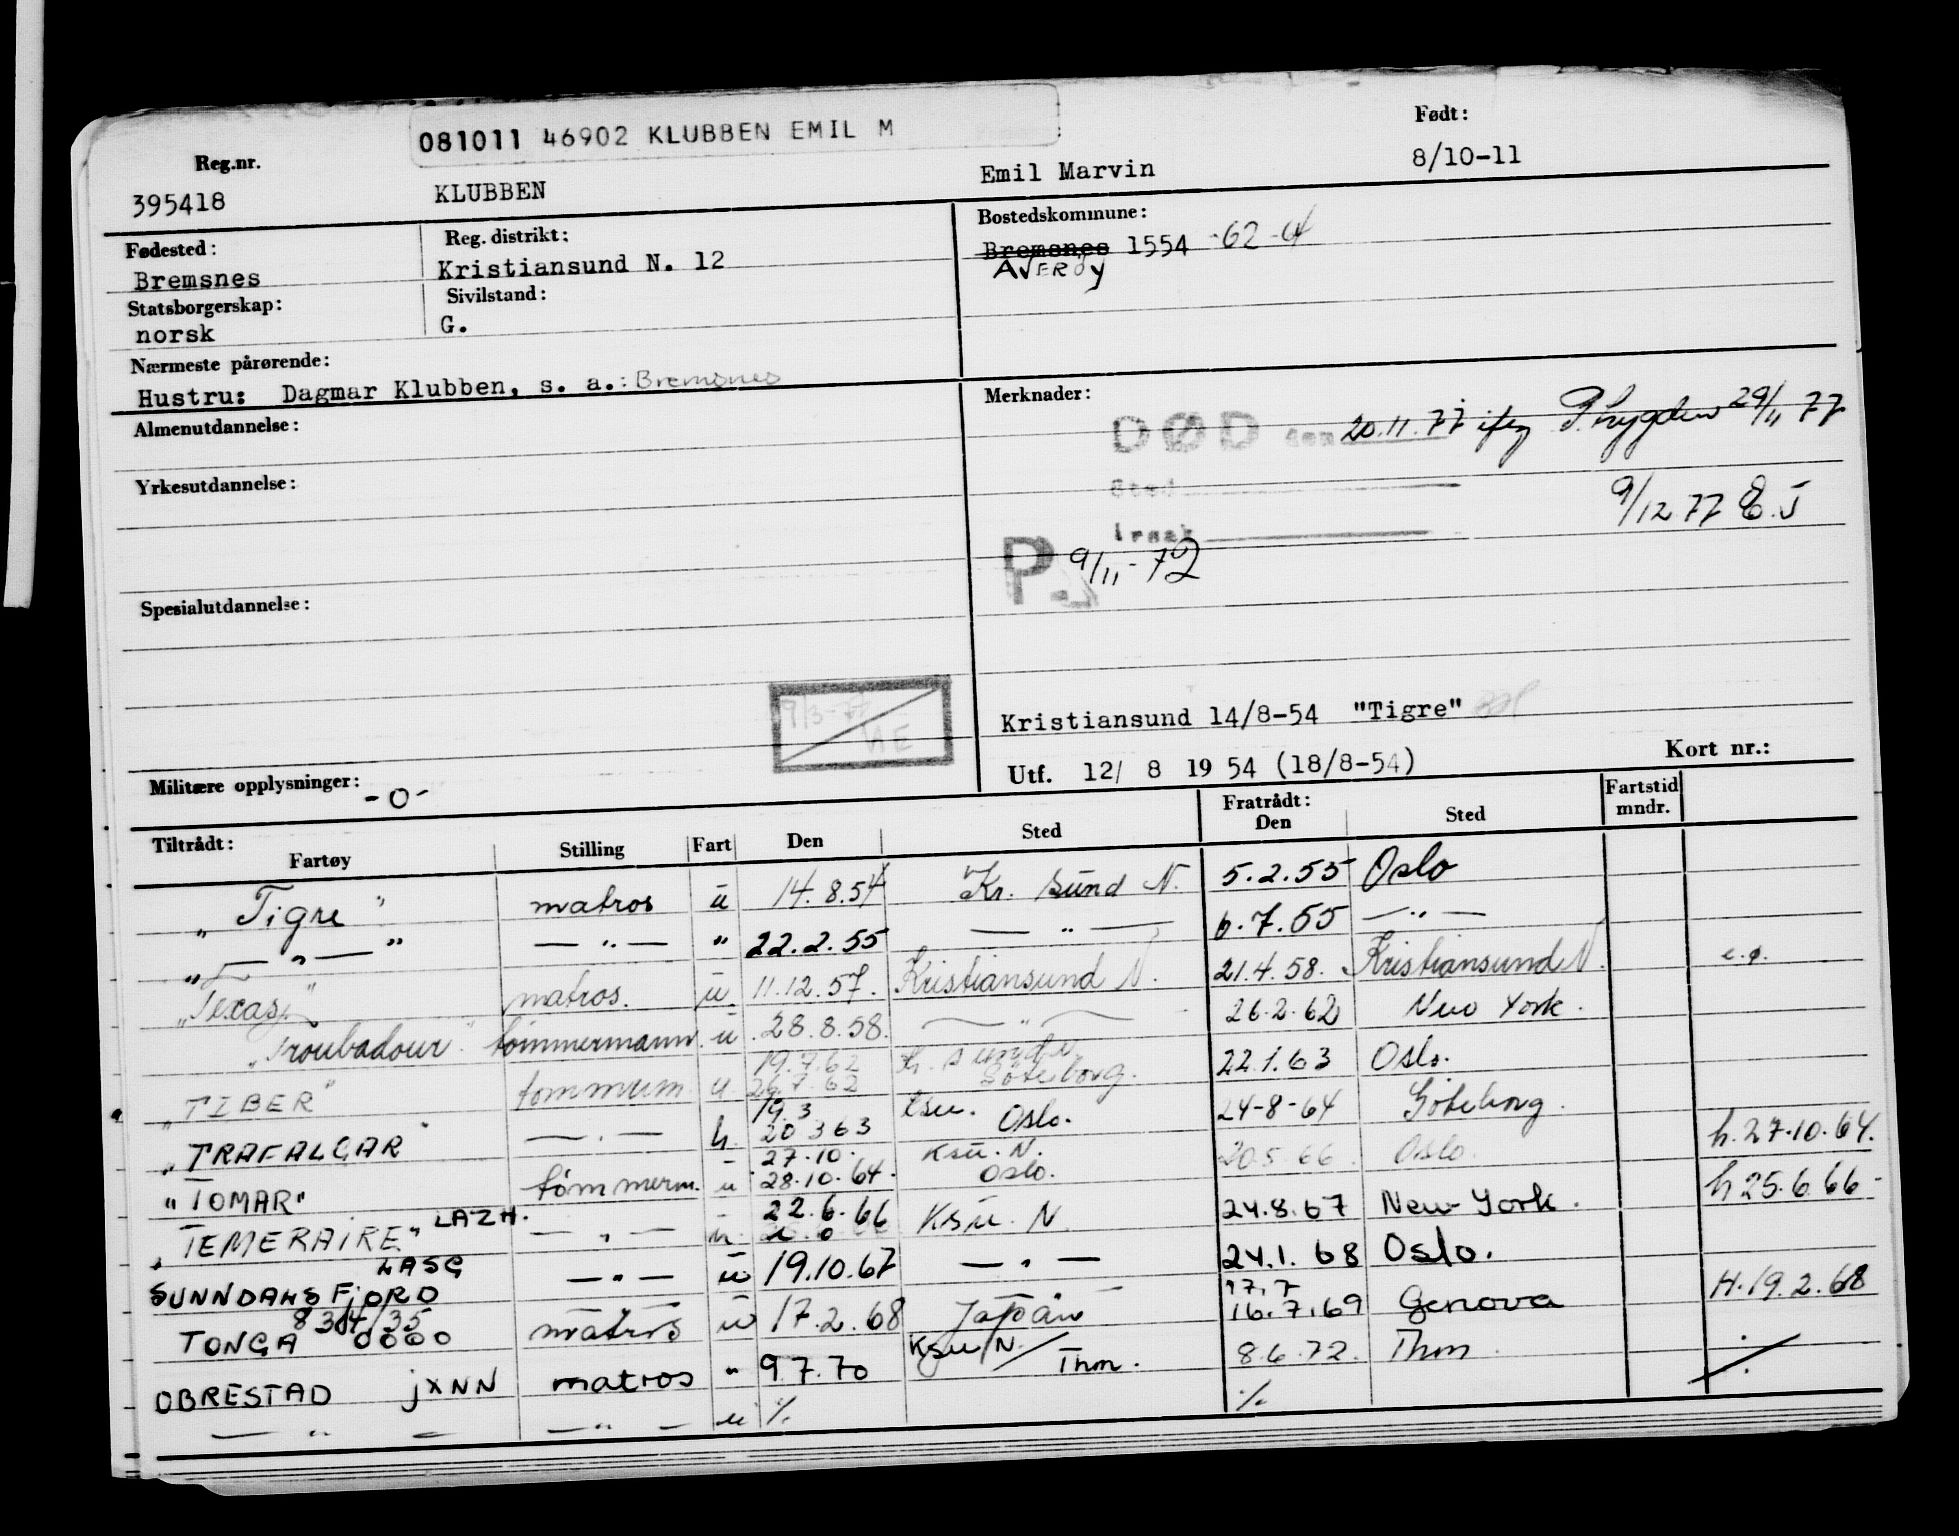 081011 46902 KLUBBEN EMIL M
Reg.nr.
Født:
395418 KLUBBEN Emil Marvin 8/10-11
Fødested: Reg. distrikt: Bostedskommune:
Bremsnes Kristiansund N. 12 Bremsnes 1554 -62-64
AVERØY
Statsborgerskap: Sivilstand:
norsk G.
Nærmeste pårørende:
Hustru: Dagmar Klubben, s. a.: Bremsnes
Merknader:
Almenutdannelse:
DØD den 20.11.77 29/11 77
Yrkesutdannelse:
Sted
9/12 77 E.J
Årsak
P 9/11-72
Spesialutdannelse:
Kristiansund 14/8-54 "Tigre"
Utf. 12/ 8 19 54 (18/8-54) Kort nr.:
Militære opplysninger: -0-
Tiltrådt: Fratrådt: Fartstid
Fartøy Stilling Fart Den Sted Den Sted mndr.
"Tigre" matros u 14.8.54 Kr. sund N. 5.2.55 Oslo
" — " — " — " — " 22.2.55 — " — 6.7.55 — " —
"Texas" matros. u 11.12.57. Kristiansund N. 21.4.58. Kristiansund N. e.ø.
"Troubadour" tømmermann u 28.8.58. — " — 26.2.62 New York.
"TIBER" tømmerm. u 19.7.62 26.7.62 Göteborg. 22.1.63 Oslo.
"TRAFALGAR" — " — 19.3 20 3 63 Ksu. Oslo. 24-8-64 Göteborg.
"TOMAR" tømmerm. u 27.10. 28.10.64. Ksu. N. Oslo. 20.5.66. Oslo h.27.10.64.
"TEMERAIRE" LAZH. — " — 22.6.66 Ksu. N. 24.8.67 New York. h 25.6.66-
SUNNDALSFJORD LASG — " — u 19.10.67 — " — 24.1.68 Oslo.
TONGA 8304/35 0000 matros u 17.2.68 Japan 17.7 16.7.69 Genova H.19.2.68
OBRESTAD JXNN matros " 9.7.70 Ksu N/Thm. 8.6.72. Thm.
— " — — " — u ./. ./.